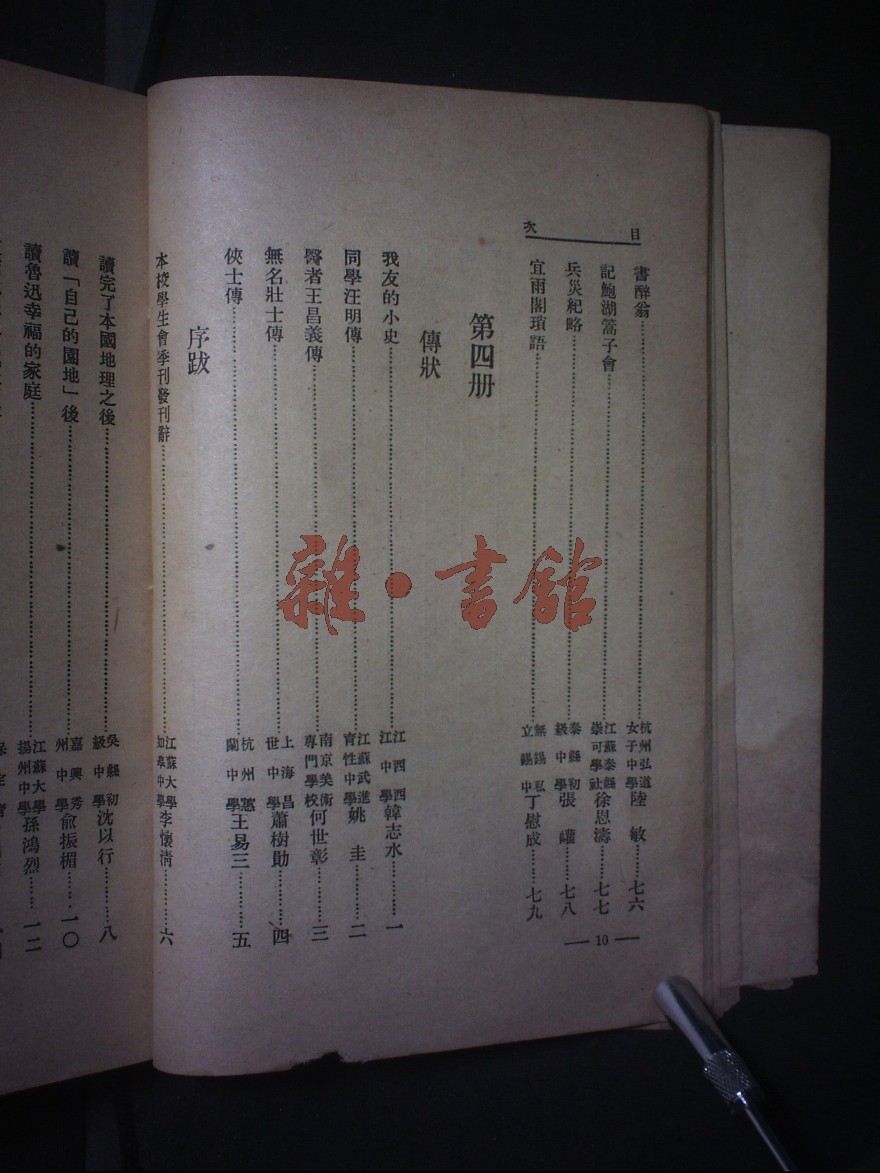 目次
書醉翁……杭州弘道女子中學陸敏……七六
記鮑湖篙子會……江蘇泰縣崇可學社徐思濤……七七
兵災紀略……泰縣初級中學張𤫩……七八
宜雨閣瑣語……無錫私立錫中丁慰成……七九
第四册
傳狀
我友的小史……江西西江中學韓志水……一
同學汪明傳……江蘇武進育性中學姚圭……二
醫者王昌義傳……南京美術專門學校何世彰……三
無名壯士傳……上海昌世中學蕭樹勛……四
俠士傳……杭州蕙蘭中學王易三……五
序跋
本校學生會季刊發刊辭……江蘇大學如臯中學李懷清……六
讀完了本國地理之後……吳縣初級中學沈以行……八
讀「自己的園地」後……嘉興秀州中學俞振楣……一〇
讀魯迅幸福的家庭……江蘇大學揚州中學孫鴻烈……一二
— 10 —
雜·書館